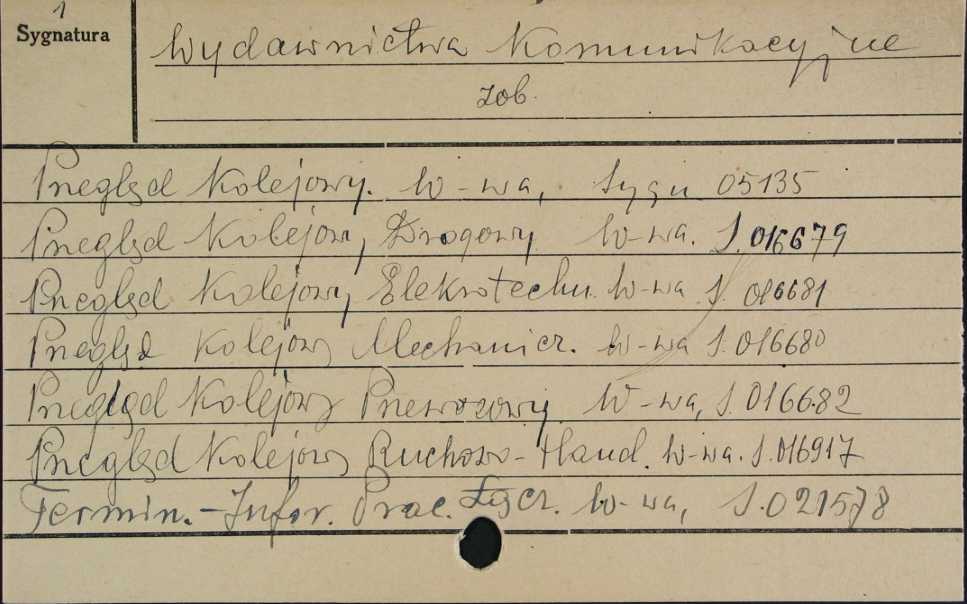 1
Sygnatura
Wydawnictwa Komunikacyjne
zob.
Przegląd Kolejowy. W-wa, Sygn 05135
Przegląd Kolejowy Drogowy W-wa. S.016679
Przegląd Kolejowy Elekrotechn. W-wa S. 016681
Przegląd Kolejowy Mechanicz. W-wa S. 016680
Przegląd Kolejowy Przewozowy W-wa, S. 016682
Przegląd Kolejowy Ruchowo-Hand. W-wa. S. 016917
Termin.-Infor. Prac. W-wa, S.021578